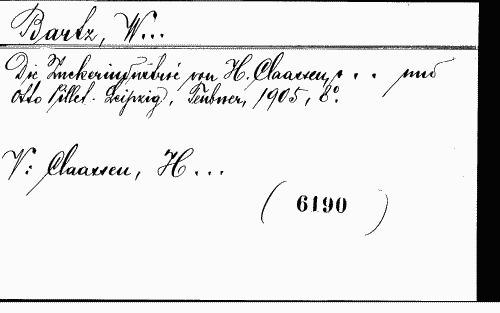 Bartz, W...
Die Zuckerindustrie von H. Claassen, . . . und
Otto Pillet. Leipzig, Teubner, 1905, 8°.
V: Claassen, H...
(6190)